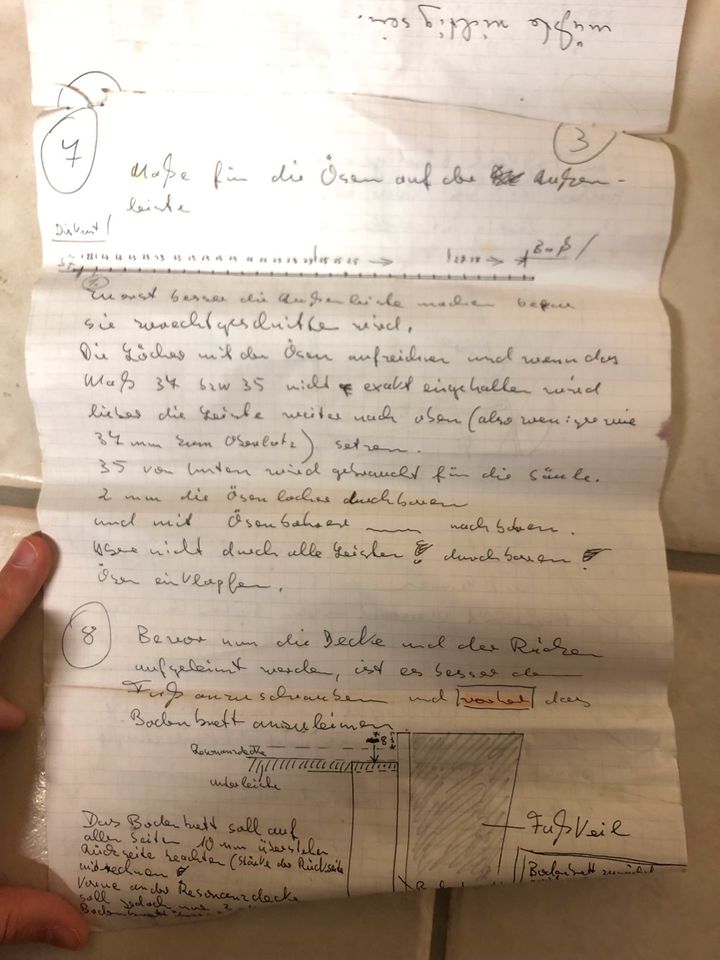 müßte richtig sein.
7
3
Maße für die Ösen auf der Außen-
leiste
Diskant
Baß
die Außenleiste machen bevor
sie zurechtgeschnitten wird.
Die Löcher mit den Ösen aufzeichnen und wenn das
Maß 34 bzw 35 nicht exakt eingehalten wird
lieber die Leiste weiter nach oben (also weniger wie
34 mm zum Oberklotz) setzen.
35 von unten wird gebraucht für die Säule.
2 mm die Ösenlöcher durchboren
und mit Ösenbohrer nachboren.
nicht durch alle Leisten durchboren
Ösen einklopfen.
8
Bevor nun die Decke und der Rücken
aufgeleimt werden, ist es besser den
Fuß anzuschrauben und vorher das
Bodenbrett anzuleimen
Resonanzdecke
8
unterleiste
Fußkeil
Das Bodenbrett soll auf
allen Seiten 10 mm überstehen
Rückseite beachten (Stärke der Rückseite
mitrechnen
Vorne an der Resonanzdecke
soll jedoch nur
Bodenbrett
Bodenbrett